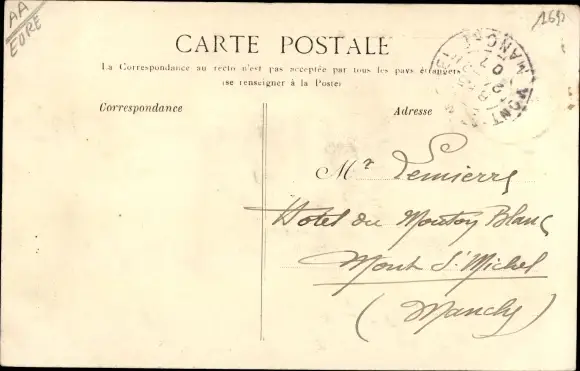 AA
EURE
1692
CARTE POSTALE
La Correspondance au recto n'est pas acceptée par tous les pays étrangers
(se renseigner à la Poste)
Correspondance
Adresse
Mr Lemierre
Hotel du Mouton Blanc
Mont St Michel
(Manche)